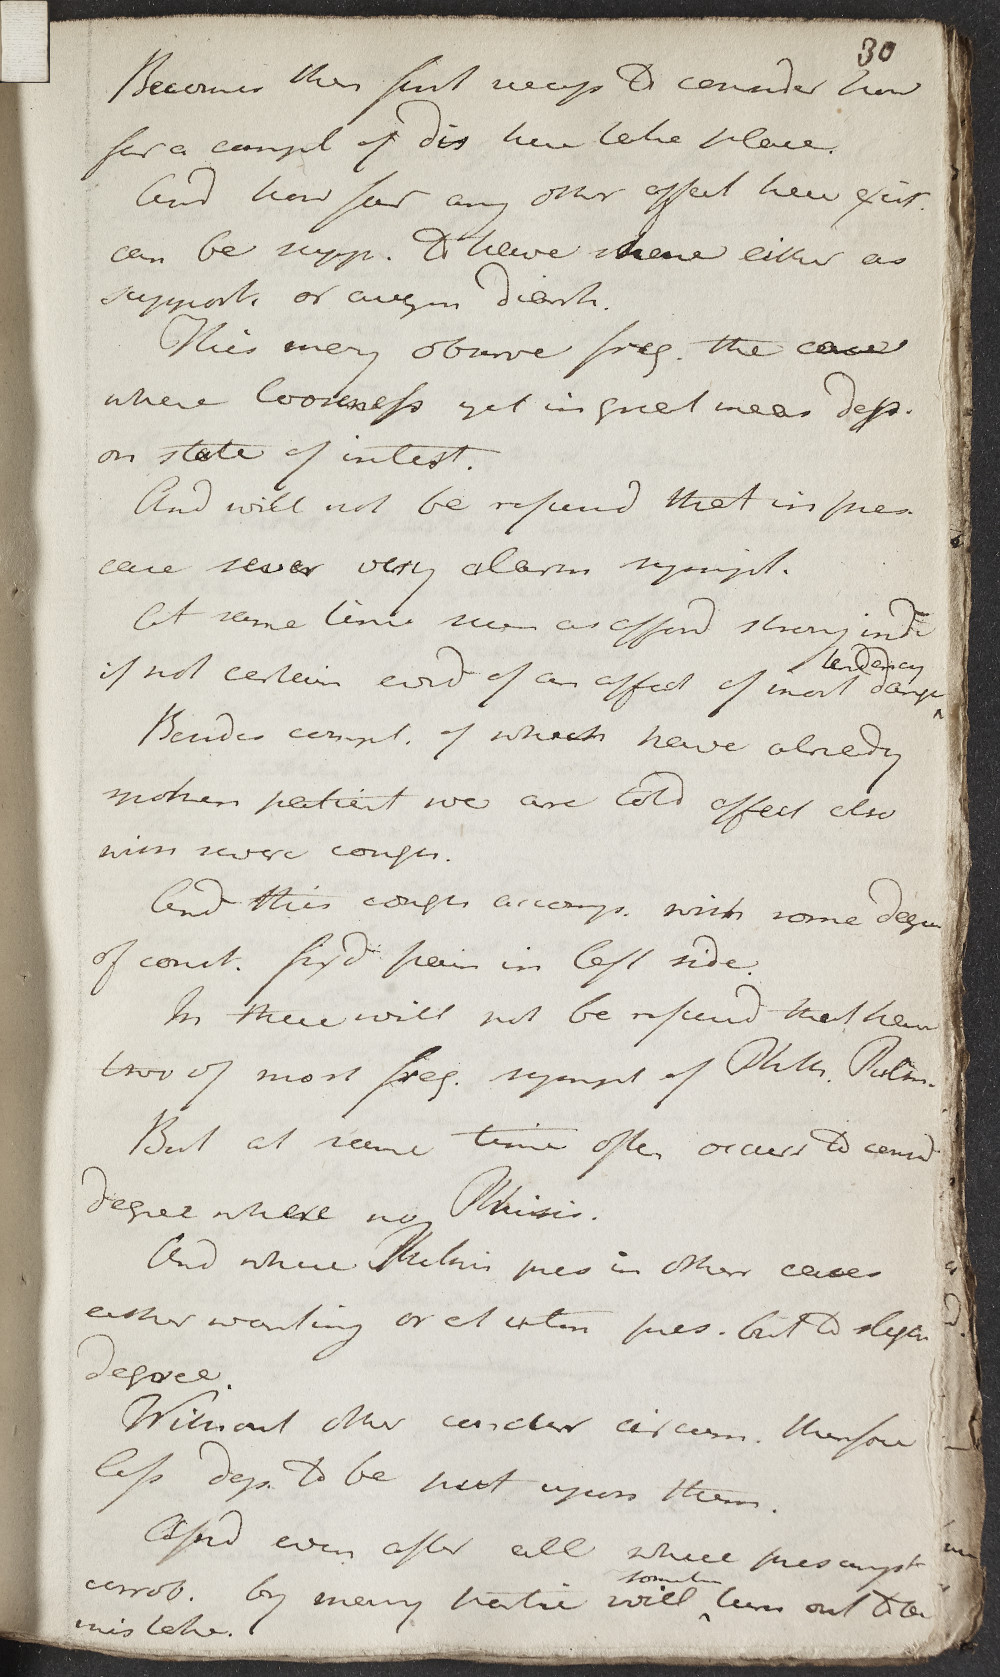 30
Becomes then first necess to consider how
far a compl of dis here take place.
And how far any other affect here exist.
can be supp. to have share either as
support. or augm diarrh.
This may observe freq. the case
where looseness yet in great meas dep.
on state of intest.
And will not be refused that in pres
case sever very alarm sympt.
At same time seem as afford strong ind
if not certain evid of an affect of most dang tendency
Besides compl. of which have already
spoken patient we are told affect also
with severe cough.
And this cough accomp. with some degree
of const. fix'd pain in left side.
In these will not be refused that have
two of most freq. sympt of Phth. Pulm.
But at same time often occurs to consid
degree where no Phthisis.
And where Phthisis pres in other cases
either wanting or at least pres. but to slight
degree.
Without other conclus circum. therefore
less dep. to be put upon them.
And even after all where presumpt
corrob. by many partic will sometim turn out to be
mistake.